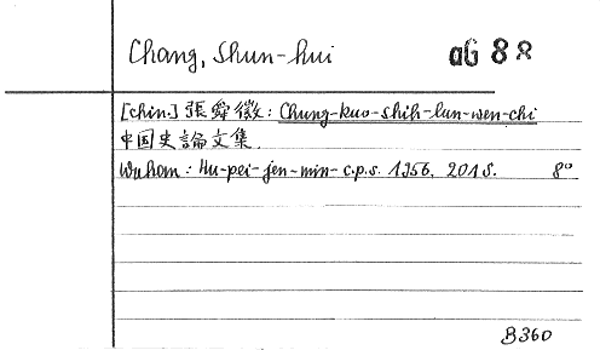 Chang, Shun-hui aG 88
[chin.] 張舜徽: Chung-kuo-shih-lun-wen-chi
中国史論文集.
Wuhan: Hu-pei-jen-min-c.p.s. 1956. 201 S. 8°
B360